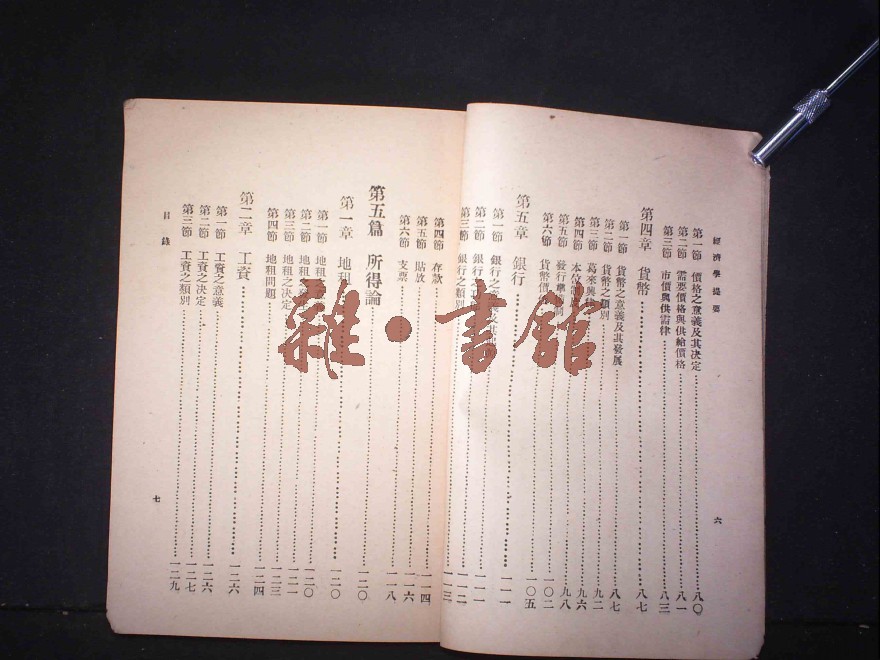 經濟學提要
六
第一節 價格之意義及其決定 八〇
第二節 需要價格與供給價格 八一
第三節 市價與供需律 八三
第四章 貨幣 八七
第一節 貨幣之意義及其發展 八七
第二節 貨幣之類別 九二
第三節 葛來興 九六
第四節 本位 九八
第五節 發行 一〇二
第六節 貨幣價 一〇五
第五章 銀行 一一一
第一節 銀行之 一一一
第二節 銀行之 一一二
第三節 銀行之類別 一一三
第四節 存款 一一四
第五節 貼放 一一六
第六節 支票 一一八
第五篇 所得論 一二〇
第一章 地租 一二〇
第一節 地租 一二〇
第二節 地租 一二一
第三節 地租之決定 一二三
第四節 地租問題 一二四
第二章 工資 一二六
第一節 工資之意義 一二六
第二節 工資之決定 一二七
第三節 工資之類別 一二九
目錄
七
雜·書館